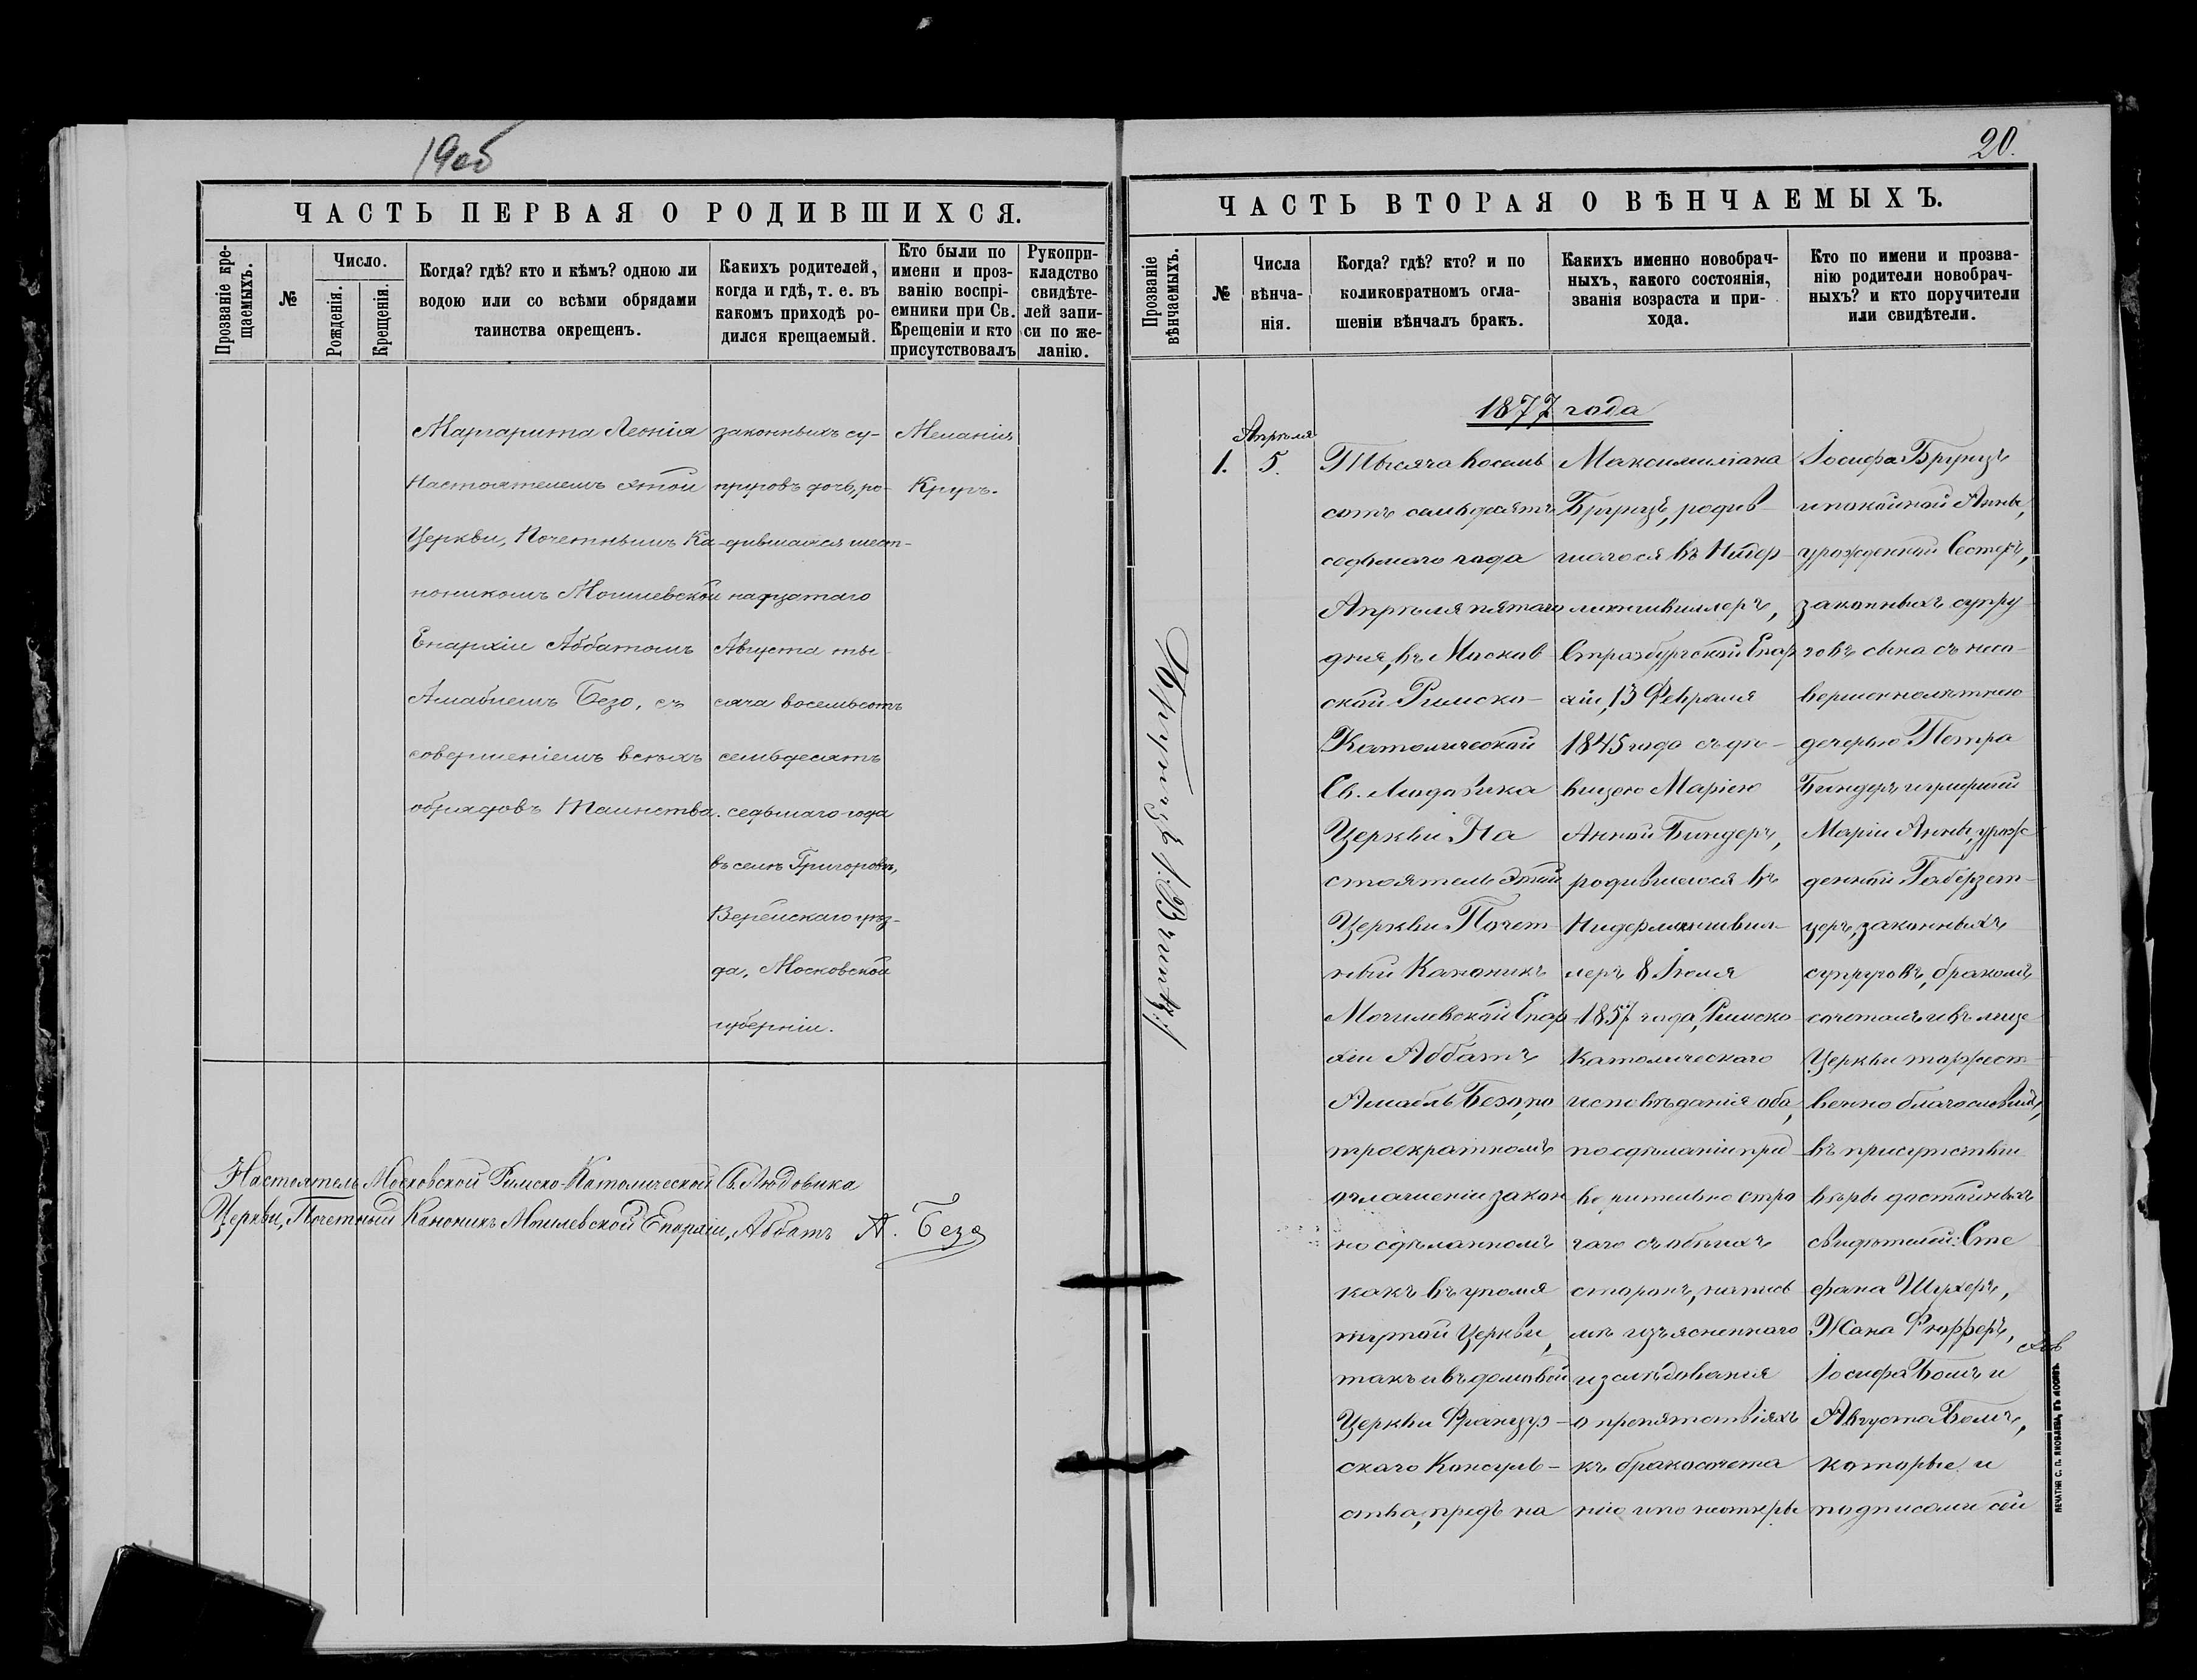 19об
ЧАСТЬ ПЕРВАЯ О РОДИВШИХСЯ.
Прозваніе кре-
щаемыхъ.
№
Число.
Рожденія.
Крещенія.
Когда? гдѣ? кто и кѣмъ? одною ли
водою или со всѣми обрядами
таинства окрещенъ.
Какихъ родителей,
когда и гдѣ, т. е. въ
какомъ приходѣ ро-
дился крещаемый.
Кто были по
имени и проз-
ванію воспрі-
емники при Св.
Крещеніи и кто
присутствовалъ
Рукопри-
кладство
свидѣте-
лей запи-
си по же-
ланію.
Маргарита Леонія
Настоятелемъ этой
Церкви, Почетнымъ Ка-
ноникомъ Могилевской
Епархіи Аббатомъ
Амаблемъ Безо, съ
совершеніемъ всѣхъ
обрядовъ Таинства.
законныхъ су-
пруговъ дочь, ро-
дившаяся шест-
надцатаго
Августа ты-
сяча восемьсотъ
семьдесятъ
седьмаго года
въ селѣ Григоровѣ,
Верейскаго уѣз-
да, Московской
губерніи.
Меланія
Кругъ.
Настоятель Московской Римско-Католической Св. Людовика
Церкви, Почетный Каноникъ Могилевской Епархіи, Аббатъ А. Безо
20.
ЧАСТЬ ВТОРАЯ О ВѢНЧАЕМЫХЪ.
Прозваніе
вѣнчаемыхъ.
№
Числа
вѣнча-
нія.
Когда? гдѣ? кто? и по
коликократномъ огла-
шеніи вѣнчалъ бракъ.
Какихъ именно новобрач-
ныхъ, какого состоянія,
званія возраста и при-
хода.
Кто по имени и прозва-
нію родители новобрач-
ныхъ? и кто поручители
или свидѣтели.
1877 года
Брунцъ /:Bruntz:/
1.
Апрѣля
5.
Тысяча восемь
сотъ семьдесятъ
седьмаго года
Апрѣля пятаго
дня, въ Москов
ской Римско-
Католической
Св. Людовика
Церкви На
стоятель этой
Церкви Почет
ный Каноникъ
Могилевской Епар
хіи Аббатъ
Амабль Безо, по
троекратномъ
оглашеніи закон
но сдѣланномъ
какъ въ упомя
нутой Церкви,
такъ и въ домовой
Церкви Француз-
скаго Консуль-
ства, предъ на
Максимиліана
Брунцъ, родив
шагося въ Нидер
лангивиллеръ,
Страсбургской Епар
хіи, 13 Февраля
1845 года съ дѣ-
вицею Маріею
Анной Биндеръ,
родившеюся въ
Нидерлангивил
леръ 8 Іюля
1857 года, Римско
Католическаго
исповѣданія оба,
по сдѣланіи пред
варительно стро
гаго съ обѣихъ
сторонъ, на
изъясненнаго
изслѣдованія
о препятствіяхъ
къ бракосочета
нію и по неоткры
Іосифа Брунцъ
и покойной Анны,
урожденной
законныхъ супру
говъ сына съ несо-
вершеннолѣтнею
дочерью Петра
Биндеръ и умершей
Маріи Анны, урож
денной
церъ, законныхъ
супруговъ, бракомъ
сочеталъ и въ лицѣ
Церкви торжест
венно благословилъ,
въ присутствіи
вѣры достойныхъ
свидѣтелей: Сте
фана Шухеръ,
Жана Рюфферъ,
Іосифа Бомъ и
Августа Бомъ,
которые и
подписали сей
ПЕЧАТНЯ С. П. ЯКОВЛЕВА, ВЪ МОСКВѢ.